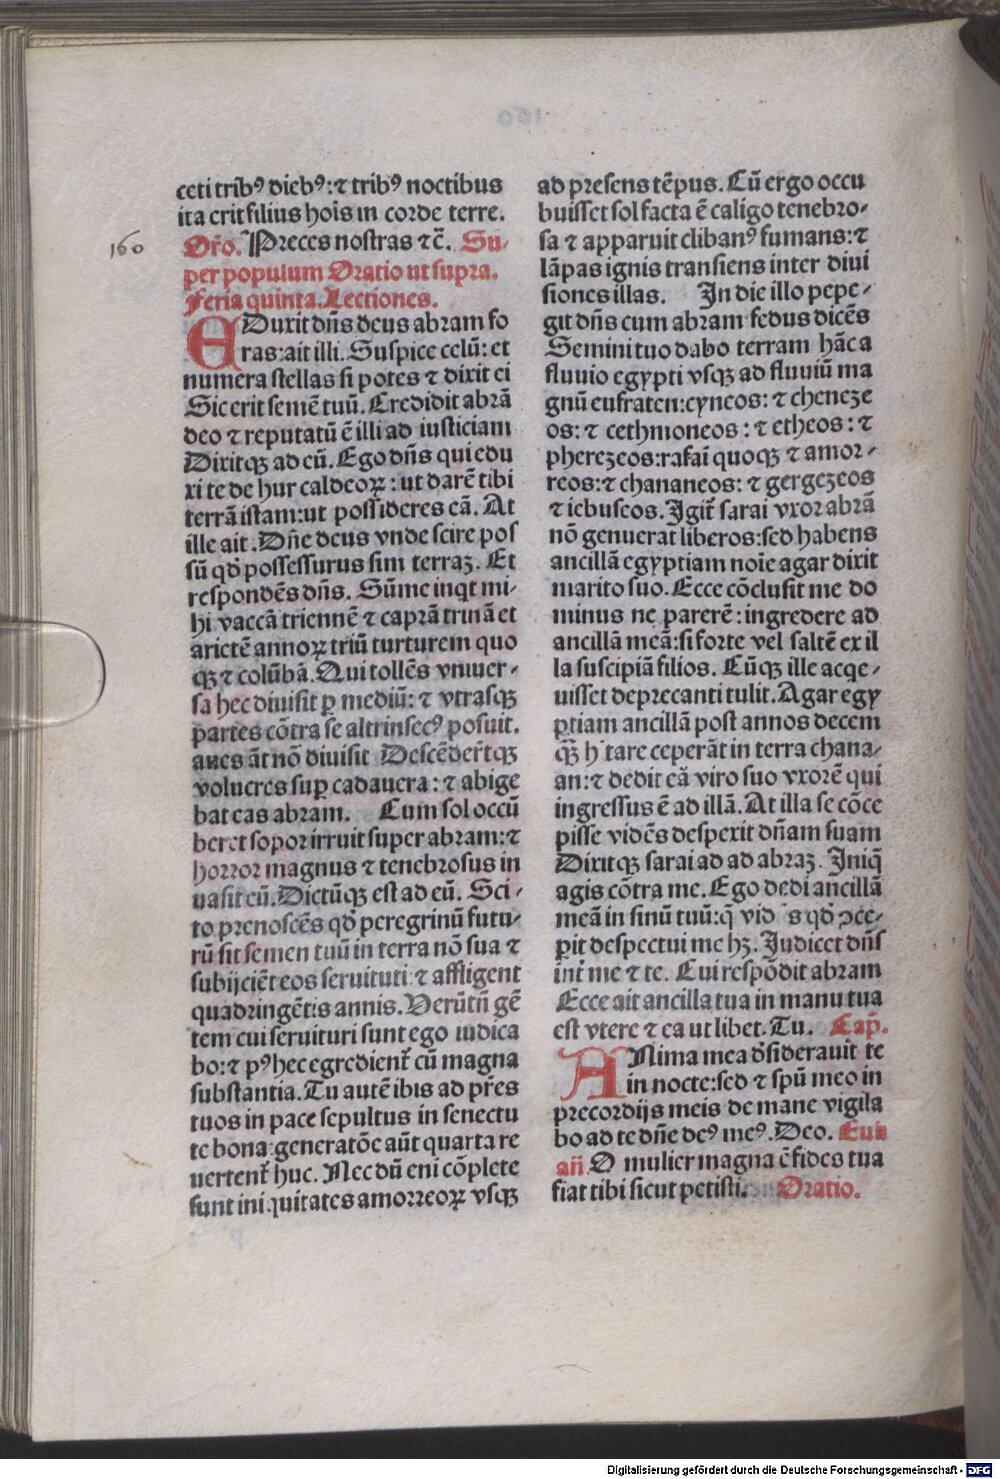 160
ceti tribꝰ diebꝰ: ⁊ tribꝰ noctibus
ita erit filius hoīs in corde terre.
Or̄o. Preces nostras ⁊ c̄. Su-
per populum Oratio ut supra.
Feria quinta. Lectiones.
EDuxit dn̄s deus abram fo
ras: ait illi. Suspice celū: et
numera stellas si potes ⁊ dixit ei
Sic erit semē tuū. Credidit abrā
deo ⁊ reputatū ē illi ad iusticiam
Dixitqꝫ ad eū. Ego dn̄s qui edu
xi te de hur caldeoꝝ: ut darē tibi
terrā istam: ut possideres eā. At
ille ait. Dn̄e deus vnde scire pos
sū qd̓ possessurus sim terraꝫ. Et
respondēs dn̄s. Sūme inqt mi-
hi vaccā triennē ⁊ caprā trinā et
arietē annoꝝ triū turturem quo
qꝫ ⁊ colūbā. Qui tollēs vniuer-
sa hec diuisit ꝑ mediū: ⁊ vtrasqꝫ
partes cōtra se altrinsecꝰ posuit.
aues āt nō diuisit Descēder̄tqꝫ
volucres suꝑ cadauera: ⁊ abige
bat eas abram. Cum sol occū
beret sopor irruit super abram: ⁊
horror magnus ⁊ tenebrosus in
uasit eū. Dictūqꝫ est ad eū. Sci-
to prenoscēs qd̓ peregrinū futu-
rū sit semen tuū in terra nō sua ⁊
subijciēt eos seruituti ⁊ affligent
quadringētis annis. Verūtn̄ gē
tem cui seruituri sunt ego iudica
bo: ⁊ pꝰ hec egredient̄ cū magna
substantia. Tu autē ibis ad pr̄es
tuos in pace sepultus in senectu
te bona: generatōe aūt quarta re
uertent̄ huc. Nec dū eni cōplete
sunt iniquitates amorreoꝝ vsqꝫ
ad presens tēpus. Cū ergo occu
buisset sol facta ē caligo tenebro-
sa ⁊ apparuit clibanꝰ fumans: ⁊
lāpas ignis transiens inter diui
siones illas. In die illo pepe-
git dn̄s cum abram fedus dicēs
Semini tuo dabo terram hāc a
fluuio egypti vsqꝫ ad fluuiū ma
gnū eufraten: cyneos: ⁊ cheneze
os: ⁊ cethmoneos: ⁊ etheos: ⁊
pherezeos: rafaī quoqꝫ ⁊ amor-
reos: ⁊ chananeos: ⁊ gergezeos
⁊ iebuseos. Igit̄ sarai vxor abrā
nō genuerat liberos: sed habens
ancillā egyptiam noīe agar dixit
marito suo. Ecce cōclusit me do
minus ne parerē: ingredere ad
ancillā meā: si forte vel saltē ex il
la suscipiā filios. Cūqꝫ ille acqe-
uisset deprecanti tulit. Agar egy
ptiam ancillā post annos decem
tare ceperāt in terra chana-
an: ⁊ dedit eā viro suo vxorē qui
ingressus ē ad illā. At illa se cōce
pisse vidēs despexit dn̄am suam
Dixitqꝫ sarai ad ad abraꝫ. Iniq̄
agis cōtra me. Ego dedi ancillā
meā in sinū tuū: q̄ vid s qd̓ ↄce-
perit despectui me hꝫ. Iudicet dn̄s
int̄ me ⁊ te. Cui respōdit abram
Ecce ait ancilla tua in manu tua
est vtere ⁊ ea ut libet. Tu. Cap̄.
ANima mea d̓siderauit te
in nocte: sed ⁊ spū meo in
precordijs meis de mane vigila
bo ad te dn̄e deꝰ meꝰ. Deo. Euā
an̄ O mulier magna ē fides tua
fiat tibi sicut petisti. Oratio.
Digitalisierung gefördert durch die Deutsche Forschungsgemeinschaft - DFG